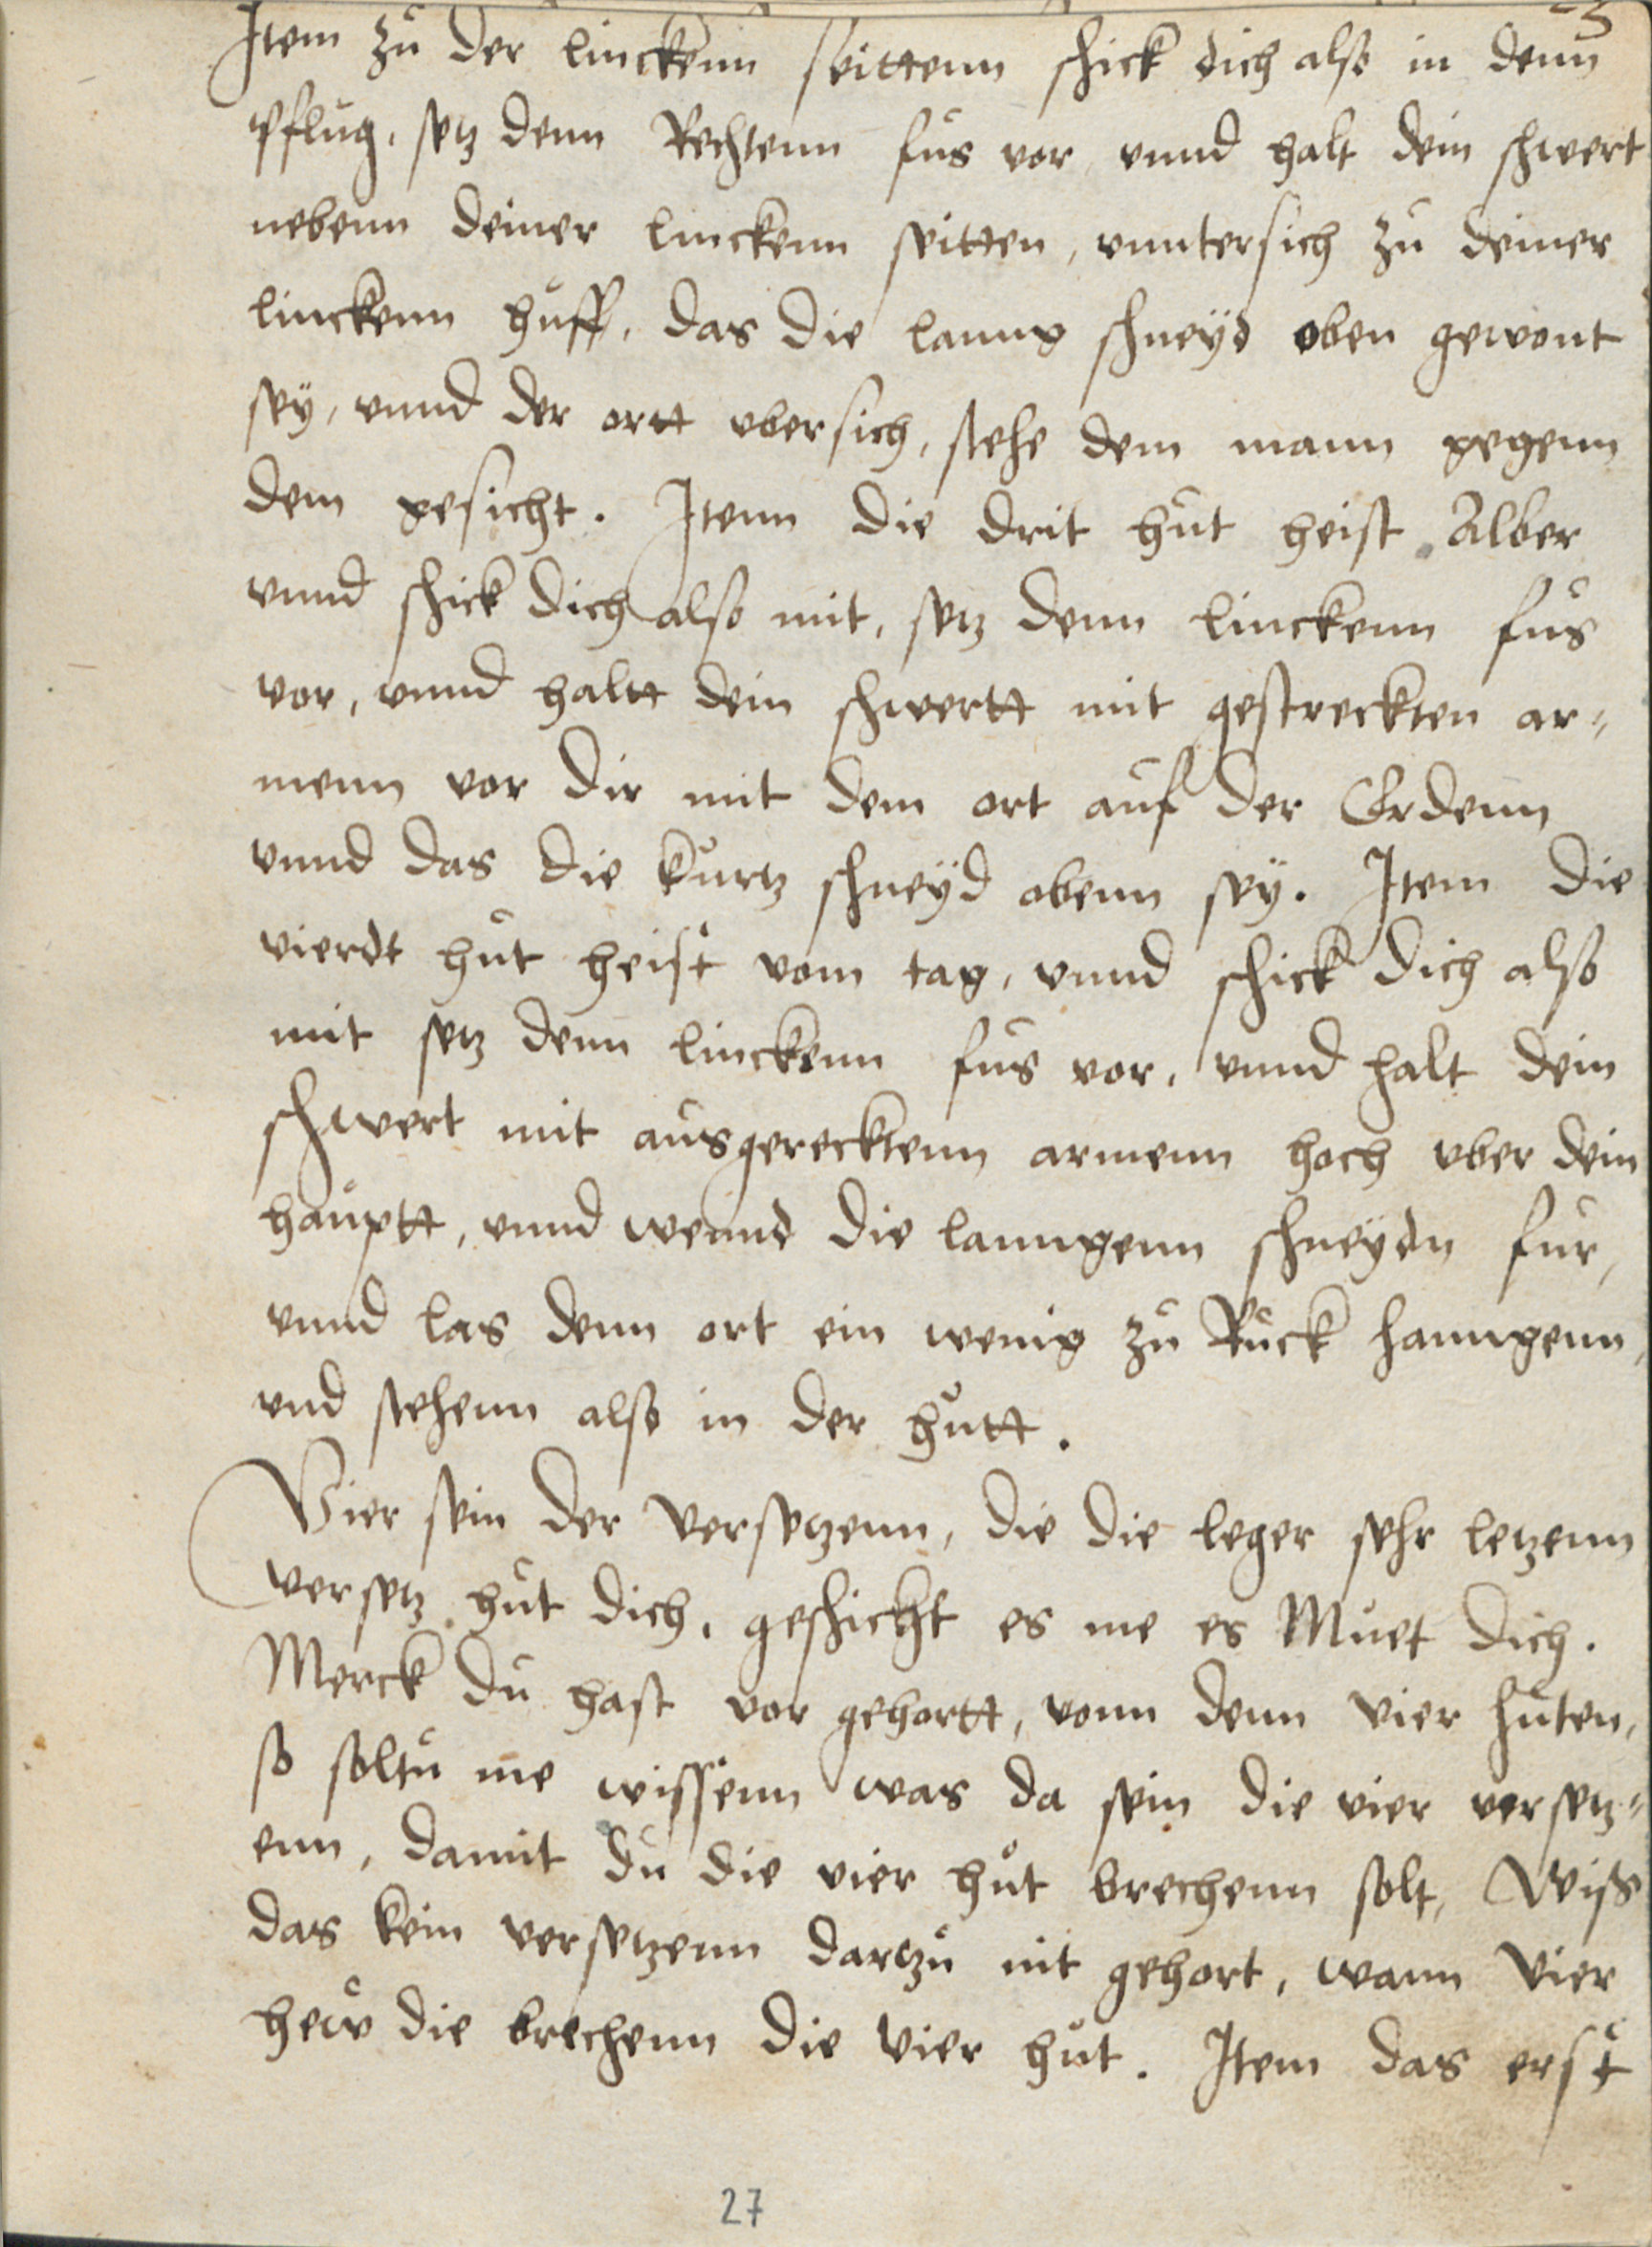 Item zu der linckenn seittenn schick dich also in denn
pflug, setz denn Rechtenn fus vor, vnnd halt dein schwert
nebenn deiner linckenn seitten, vnntersich zu deiner
linckenn huff, das die lanng schneyd oben gewont
sey, vnnd der ortt vbersich, stehe dem mann gegenn
dem gesicht. Itenn die drit hut heist Alber
vnnd schick dich also mit, setz denn linckenn fus
vor, vnnd haltt dein schwertt mit gestreckten ar=
menn vor dir mit dem ort auf der Erdenn
vnnd das die kurtz schneyd obenn sey. Item die
vierdt hut heist vom tag, vnnd schick dich also
mit setz denn linckenn fus vor, vnnd halt dein
schwert mit ausgerecktenn armenn hoch vber dein
hauptt, vnnd wennd die lanngenn schneydn fur,
vnnd las denn ort ein wenig zu Ruck hanngenn,
vnd stehenn also in der hutt.
Vier sein der versetzenn, die die leger sehr letzenn
versetz hut dich, geschicht es me es Muet dich.
Merck du hast vor gehortt, vonn denn vier huten,
so soltu me wissenn was da sein die vier versetz=
enn, damit du die vier hut brechenn solt, Wiss
das kein versetzenn dartzu nit gehort, wann vier
hew die brechenn die vier hut. Item das erst
27